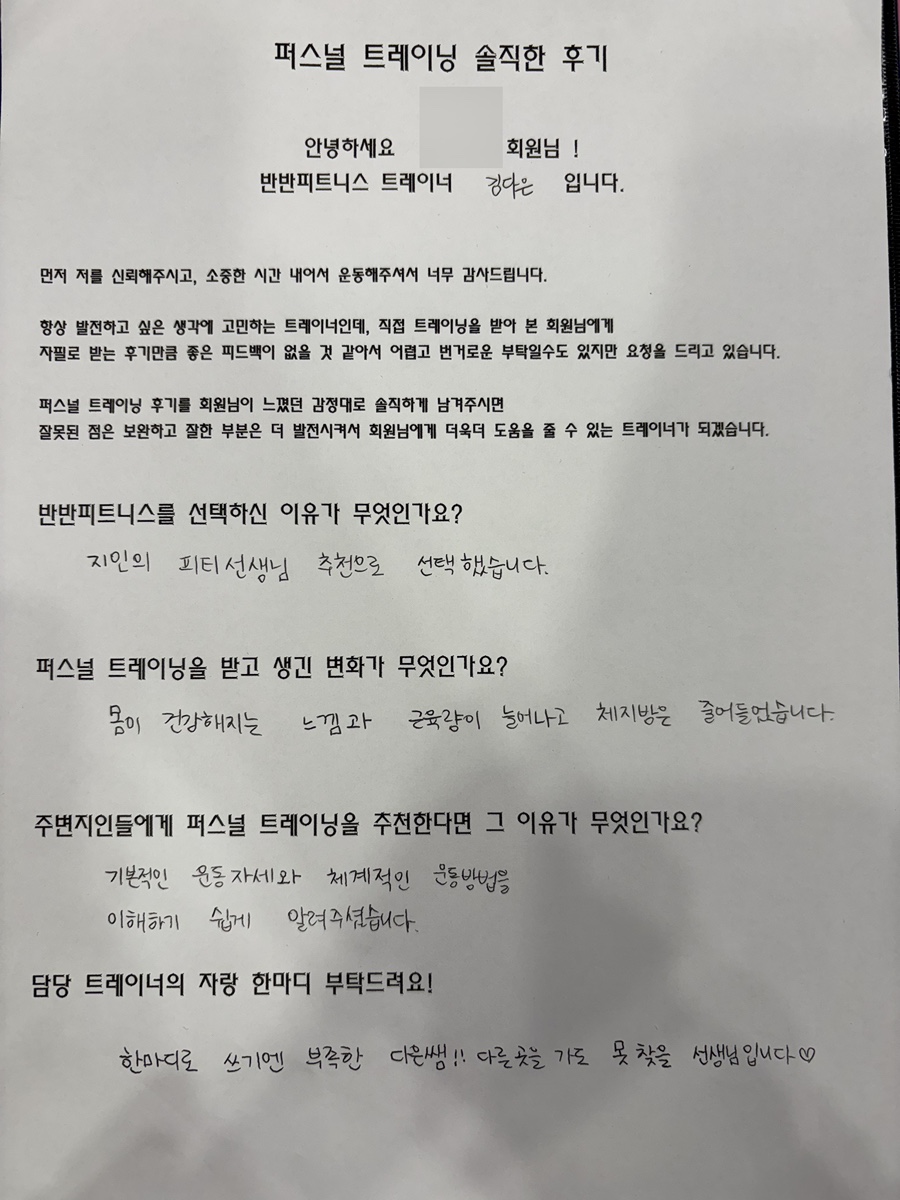 퍼스널 트레이닝 솔직한 후기
안녕하세요 회원님 !
반반피트니스 트레이너 김다은 입니다.
먼저 저를 신뢰해주시고, 소중한 시간 내어서 운동해주셔서 너무 감사드립니다.
항상 발전하고 싶은 생각에 고민하는 트레이너인데, 직접 트레이닝을 받아 본 회원님에게
자필로 받는 후기만큼 좋은 피드백이 없을 것 같아서 어렵고 번거로운 부탁일수도 있지만 요청을 드리고 있습니다.
퍼스널 트레이닝 후기를 회원님이 느꼈던 감정대로 솔직하게 남겨주시면
잘못된 점은 보완하고 잘한 부분은 더 발전시켜서 회원님에게 더욱더 도움을 줄 수 있는 트레이너가 되겠습니다.
반반피트니스를 선택하신 이유가 무엇인가요?
지인의 피티선생님 추천으로 선택했습니다.
퍼스널 트레이닝을 받고 생긴 변화가 무엇인가요?
몸이 건강해지는 느낌과 근육량이 늘어나고 체지방은 줄어들었습니다.
주변지인들에게 퍼스널 트레이닝을 추천한다면 그 이유가 무엇인가요?
기본적인 운동자세와 체계적인 운동방법을
이해하기 쉽게 알려주셨습니다.
담당 트레이너의 자랑 한마디 부탁드려요!
한마디로 쓰기엔 부족한 다은쌤!! 다른곳을 가도 못찾을 선생님입니다♡